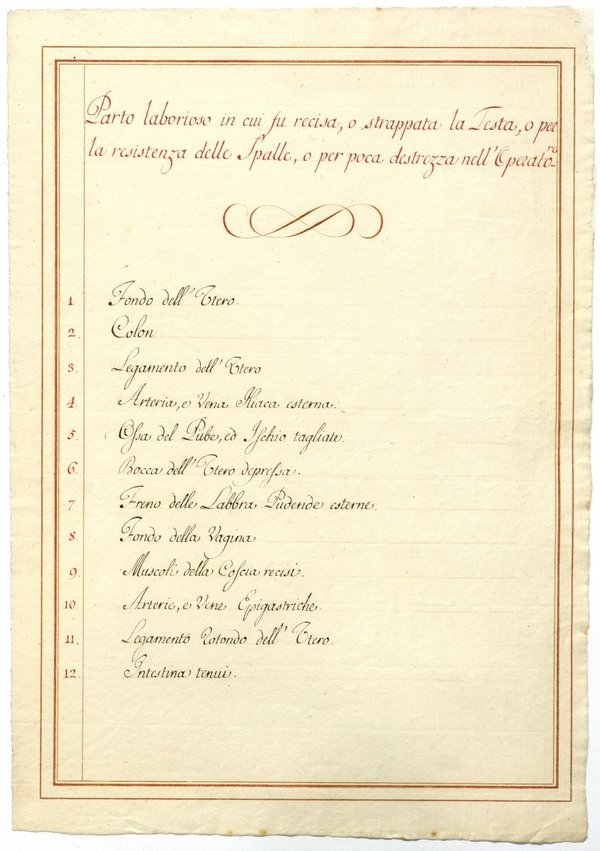 Parto laborioso in cui fu recisa, o strappata la Testa, o per
la resistenza delle Spalle, o per poca destrezza nell' Operatore
1 Fondo dell' Utero.
2. Colon
3. Legamento dell' Utero
4. Arteria, e Vena Iliaca esterna.
5. Ossa del Pube, ed Ischio tagliate.
6. Bocca dell' Utero depressa.
7 Freno delle Labbra Pudende esterne.
8 Fondo della Vagina
9. Muscoli della Coscia recisi.
10 Arterie, e Vene Epigastriche.
11. Legamento Rotondo dell' Utero.
12. Intestina tenui.